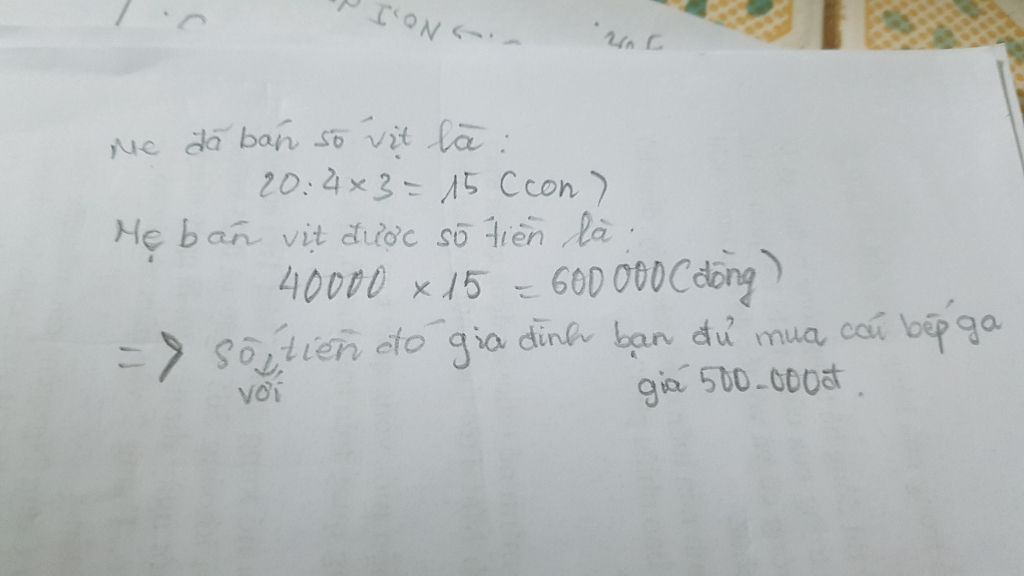 Mẹ đã bán số vịt là:
20:4×3= 15 (con)
Mẹ bán vịt được số tiền là:
40000 × 15 = 600 000 (đồng)
=> số tiền đó gia đình bạn đủ mua cái bếp ga
với
giá 500-000đ.